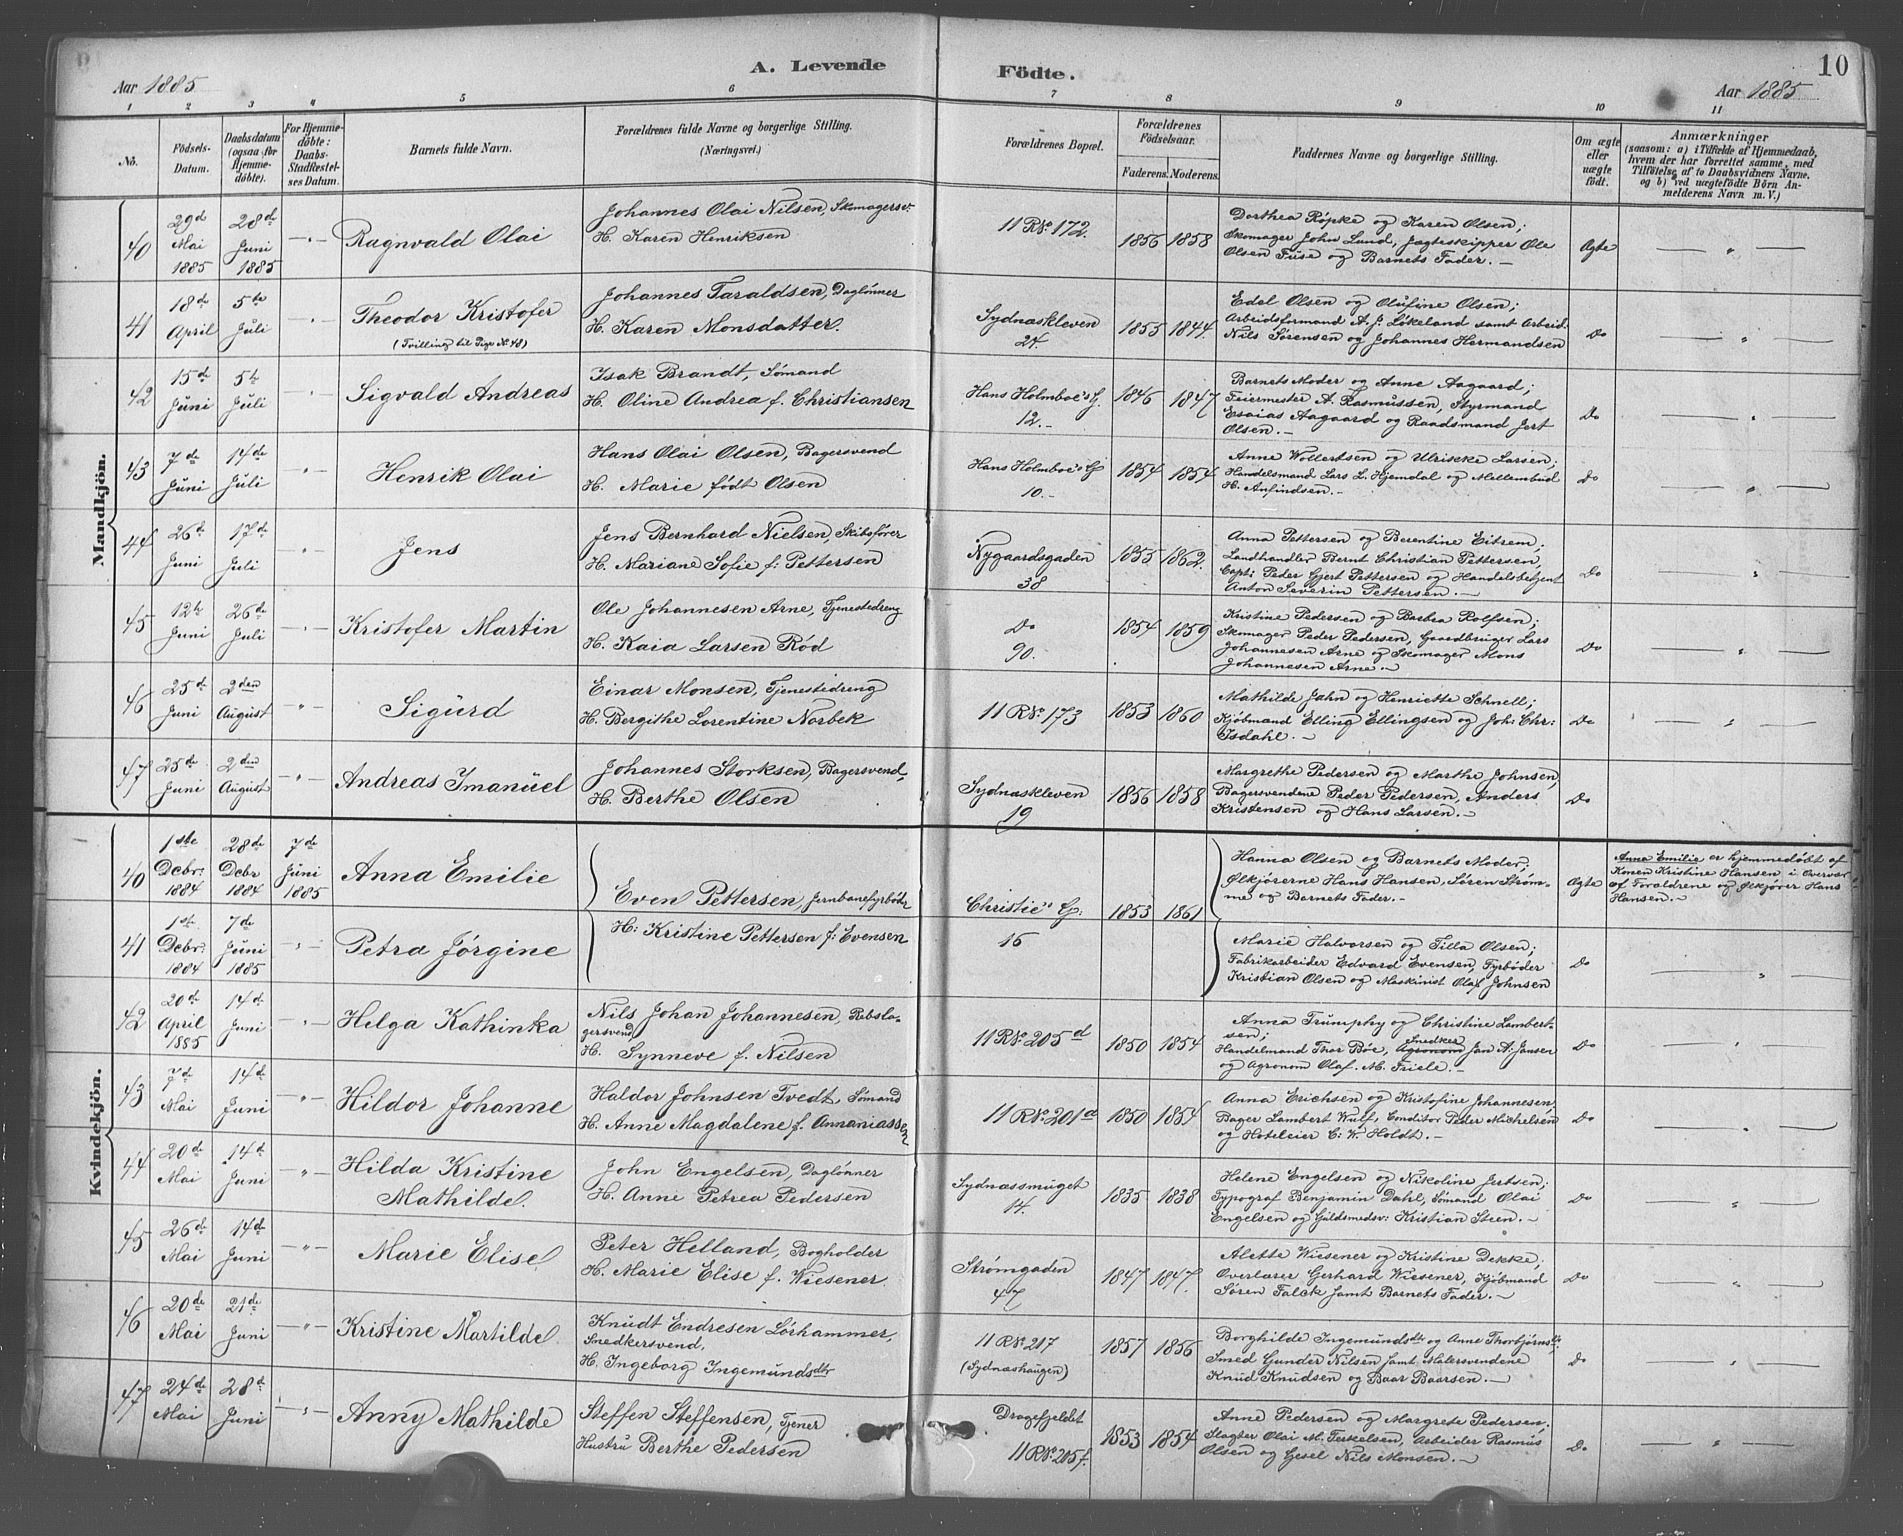 A. Levende Födte. 10
Aar 1885 Aar 1885
1 2 3 4 5 6 7 8 9 10 11
No.
Födsels-Datum.
Daabsdatum (ogsaa for Hjemme-döbte).
For Hjemme-döbte: Daabs-Stadfæstelses Datum.
Barnets fulde Navn.
Forældrenes fulde Navne og borgerlige Stilling. (Næringsvei.)
Forældrenes Bopæl.
Forældrenes Födselsaar.
Faderens. Moderens.
Faddernes Navne og borgerlige Stilling.
Om ægte eller uægte födt.
Anmærkninger
(saasom: a) i Tilfælde af Hjemmedaab,
hvem der har forrettet samme, med
Tilföielse af to Daabsvidners Navne,
og b) ved uægtefödte Börn An-
melderens Navn m. V.)
Mandkjön.
40 29d Mai 1885 28de Juni 1885 Ragnvald Olai
Johannes Olai Nilsen, Skomagersv.
H. Karen Henriksen
11 R No 172. 1856 1858
Dorthea Röpke og Karen Olsen;
Skomager John Lund, Jægteskipper Ole
Olsen Friise og Barnets Fader. Ægte
41 18de April 5te Juli Theodor Kristofer
(Tvilling til Pige No 48)
Johannes Taraldsen, Daglønner
H. Karen Monsdatter.
Sydnæskleven 24. 1855 1844.
Edel Olsen og Olufine Olsen;
Arbeidsformand A. J. Løkeland samt Arbeid.
Nils Sørensen og Johannes Hermandsen Do
42 15de Juni 5te Juli Sigvald Andreas
Isak Brandt, Sømand
H. Oline Andrea f. Christiansen
Hans Holmboe's G. 12. 1846 1847
Barnets Moder og Anne Aagaard;
Feiermester A. Rasmussen, Styrmand
Esaias Aagaard og Raadsmand Jert
Olsen. Do
43 7de Juni 14de Juli Henrik Olai
Hans Olai Olsen, Bagersvend
H. Marie født Olsen
Hans Holmboe's G 10. 1854 1854
Anne Wollertsen og Ulrikke Larsen;
Handelsmand Lars L. Hjemdal og Mellembud
H. Anfindsen. Do
44 26de Juni 17de Juli Jens
Jens Bernhard Nielsen Skibsfører
H. Mariane Sofie f: Pettersen
Nygaardsgaden 38 1855 1862.
Anna Pettersen og Berentine Eitrem;
Landhandler Bernt Christian Pettersen,
Capt: Peder Gjert Pettersen og Handelsbetjent
Anton Severin Pettersen. Do
45 12te Juni 26de Juli Kristofer Martin
Ole Johannesen Arne, Tjenestedreng
H. Kaia Larsen Röd
Do 90. 1854 1859
Kristine Pedersen og Barbra Rolfsen;
Skomager Peder Pedersen, Gaardbruger Lars
Johannesen Arne og Skomager Mons
Johannesen Arne. Do
46 25de Juni 2den August Sigurd
Einar Monsen, Tjenestedreng
H. Bergithe Lorentine Norbek
11 R No 173 1853 1860
Mathilde Jahn og Henriette Schnell;
Kjøbmand Elling Ellingsen og Joh: Chr:
Isdahl. Do
47 25de Juni 2den August Andreas Imanuel
Johannes Storksen, Bagersvend,
H. Berthe Olsen
Sydnæskleven 19 1856 1858
Margrethe Pedersen og Marthe Johnsen,
Bagersvendene Peder Pedersen, Anders
Kristensen og Hans Larsen. Do
Kvindekjön.
40 1ste Debr. 1884 28de Debr 1884 7de Juni 1885 Anna Emilie
Even Pettersen, Jernbanefyrbøder
H: Kristine Pettersen f: Evensen
Christie's G: 16 1853 1861
Hanna Olsen og Barnets Moder;
Ølkjørerne Hans Hansen, Søren Strøm-
me og Barnets Fader. Ægte
Anna Emilie er hjemmedøbt af
Konen Kristine Hansen i Overvær
af Forældrene og Ølkjører Hans
Hansen.
41 1ste Debr. 1884 7de Juni 1885 Petra Jörgine
Marie Halvorsen og Tilla Olsen;
Fabrikarbeider Edvard Evensen, Fyrbøder
Kristian Olsen og Maskinist Olaf Johnsen Do
42 20de April 1885 14de Juni Helga Kathinka
Nils Johan Johannesen, Rebsla-
gersvend
H. Synneve f. Nilsen
11 R No 205 d 1850 1854
Anna Trumphy og Christine Lambert-
sen;
Handelmand Thor Bøe, Agronom Snedker Jan A. Jansen
og Agronom Olaf. M. Friele. Do
43 7de Mai 14de Juni Hildor Johanne
Haldor Johnsen Tvedt, Sømand
H. Anne Magdalene f. Annaniassen
11 R No 201 d 1850 1854
Anna Erichsen og Kristofine Johannesen,
Bager Lambert Wulf, Conditor Peder Michelsen
og Hoteleier C. W. Holdt. Do
44 20de Mai 14de Juni Hilda Kristine Mathilde.
John Engelsen, Daglønner
H. Anne Petrea Pedersen
Sydnæssmuget 14. 1835 1838
Helene Engelsen og Nikoline Jertsen;
Typograf Benjamin Dahl, Sømand Olai
Engelsen og Guldsmedsv: Kristian Steen. Do
45 26de Mai 14de Juni Marie Elise.
Peter Helland, Bogholder
H. Marie Elise f. Wiesener.
Strømgaden 47 1847 1847.
Alette Wiesener og Kristine Dekke;
Overlærer Gerhard Wiesener, Kjøbmand
Søren Falck samt Barnets Fader. Do
46 20de Mai 21de Juni Kristine Martilde.
Knudt Endresen Lørhammer,
Snedkersvend,
H. Ingeborg Ingemundsdtr
11 R No 217 (Sydnæshaugen) 1857 1856
Borghilde Ingemundsdtr og Anne Thorbjørnsdtr;
Smed Gunder Nilsen samt Malersvendene
Knud Knudsen og Baar Baarsen. Do
47 24de Mai 28de Juni Anny Mathilde
Steffen Steffensen, Tjener
Hustru Berthe Pedersen
Dragefjeldet 11 R No 205 f. 1853 1854
Anne Pedersen og Margrete Pedersen,
Slagter Olai M. Terkelsen, Arbeider Rasmus
Olsen og Gesel Nils Monsen. Do